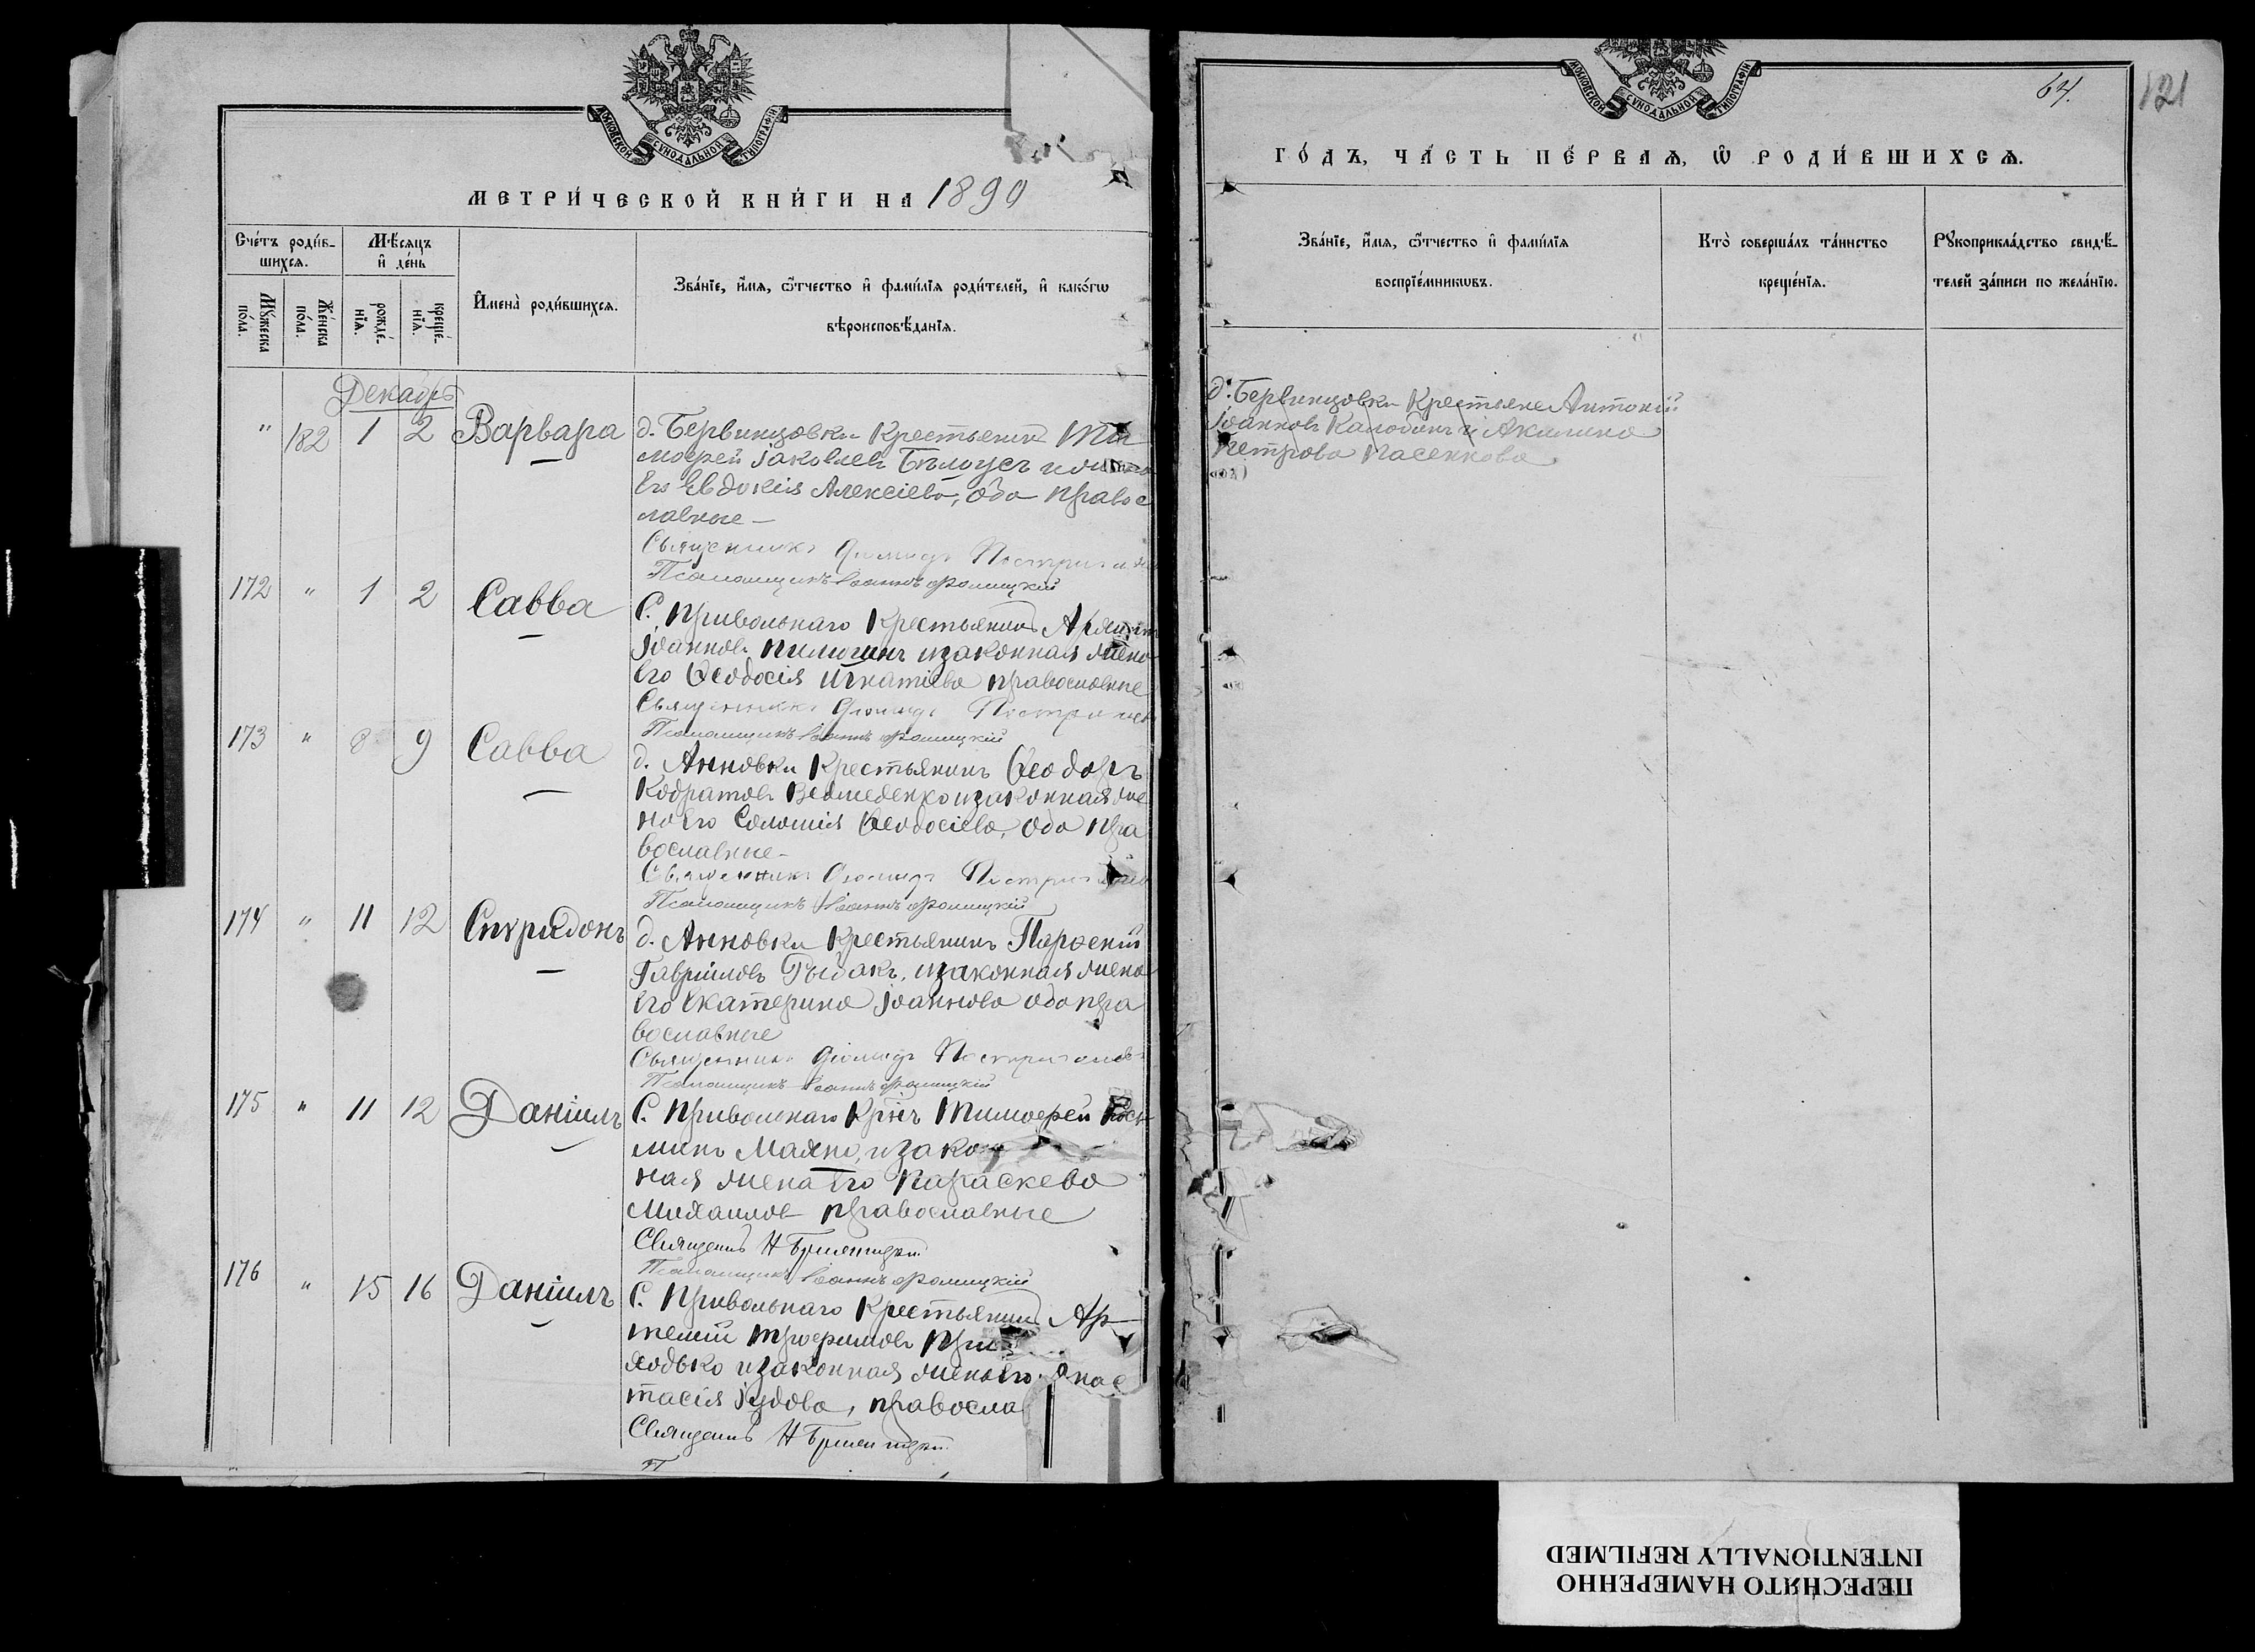 МОСКОВСКОЙ СѴНОДАЛЬНОЙ ТИПОГРАФІИ
МЕТРИ́ЧЕСКОЙ КНИ́ГИ НА 1890
Сче́тъ роди́в-
шихсѧ.
Мꙋ́жеска
по́ла.
Же́нска
по́ла.
Мѣ́сѧцъ
и҆ де́нь
рожде́-
нїѧ.
креще́-
нїѧ.
И҆мена̀ роди́вшихсѧ.
Зва́нїе, и҆́мѧ, ѻ҆́тчество и҆ фами́лїѧ роди́телей, и҆ како́гѡ
вѣроисповѣ́данїѧ.
Декабрь
" 182 1 2 Варвара
д. Бервинцовки Крестьянинъ Ти
моѳей Іаковлевъ Бѣлоусъ и
его Евдокія Алексіева, оба правос
лавные
Священникъ Діомидъ
Псаломщикъ Іоаннъ
172 " 1 2 Савва
С. Привольнаго Крестьянинъ
Іоанновъ Пилюгинъ и законная жена
его Ѳеодосія Игнатіева православные
Священникъ Діомидъ
Псаломщикъ Іоаннъ
173 " 8 9 Савва
д. Анновки Крестьянинъ Ѳеодоръ
Кодратовъ Ведмеденко и законная же
на его Соломія Ѳеодосіева, оба пра
вославные
Священникъ Діомидъ
Псаломщикъ Іоаннъ
174 " 11 12 Спѵридонъ
д. Анновки Крестьянинъ Парѳеній
Гавріиловъ Рыбакъ, и законная жена
его Екатерина Іоаннова оба пра
вославные
Священникъ Діомидъ
Псаломщикъ Іоаннъ
175 " 11 12 Даніилъ
С. Привольнаго Кр-нъ Тимоѳей Кось
минъ и закон
ная жена его Параскева
Михаилова православные
Священъ Н
Псаломщикъ Іоаннъ
176 " 15 16 Даніилъ
С. Привольнаго Крестьянинъ Ар
темій Трофимовъ При
ходько и законная жена его Анас
тасія Іудова, правосла
Священъ Н
П
МОСКОВСКОЙ СѴНОДАЛЬНОЙ ТИПОГРАФІИ
64.
121
ГО́ДЪ, ЧА́СТЬ ПЕ́РВАѦ, Ѽ РОДИ́ВШИХСѦ.
Зва́нїе, и҆́мѧ, ѻ҆́тчество и҆ фами́лїѧ
воспрїе́мникѡвъ.
Кто̀ соверша́лъ та́инство
креще́нїѧ.
Рꙋкоприкла́дство свидѣ́-
телей за́писи по жела́нїю.
д. Бервинцовки Крестьяне Антоній
Іоанновъ Калодинъ и Акилина
Петрова Пасенкова
ПЕРЕСНЯТО НАМЕРЕННО
INTENTIONALLY REFILMED